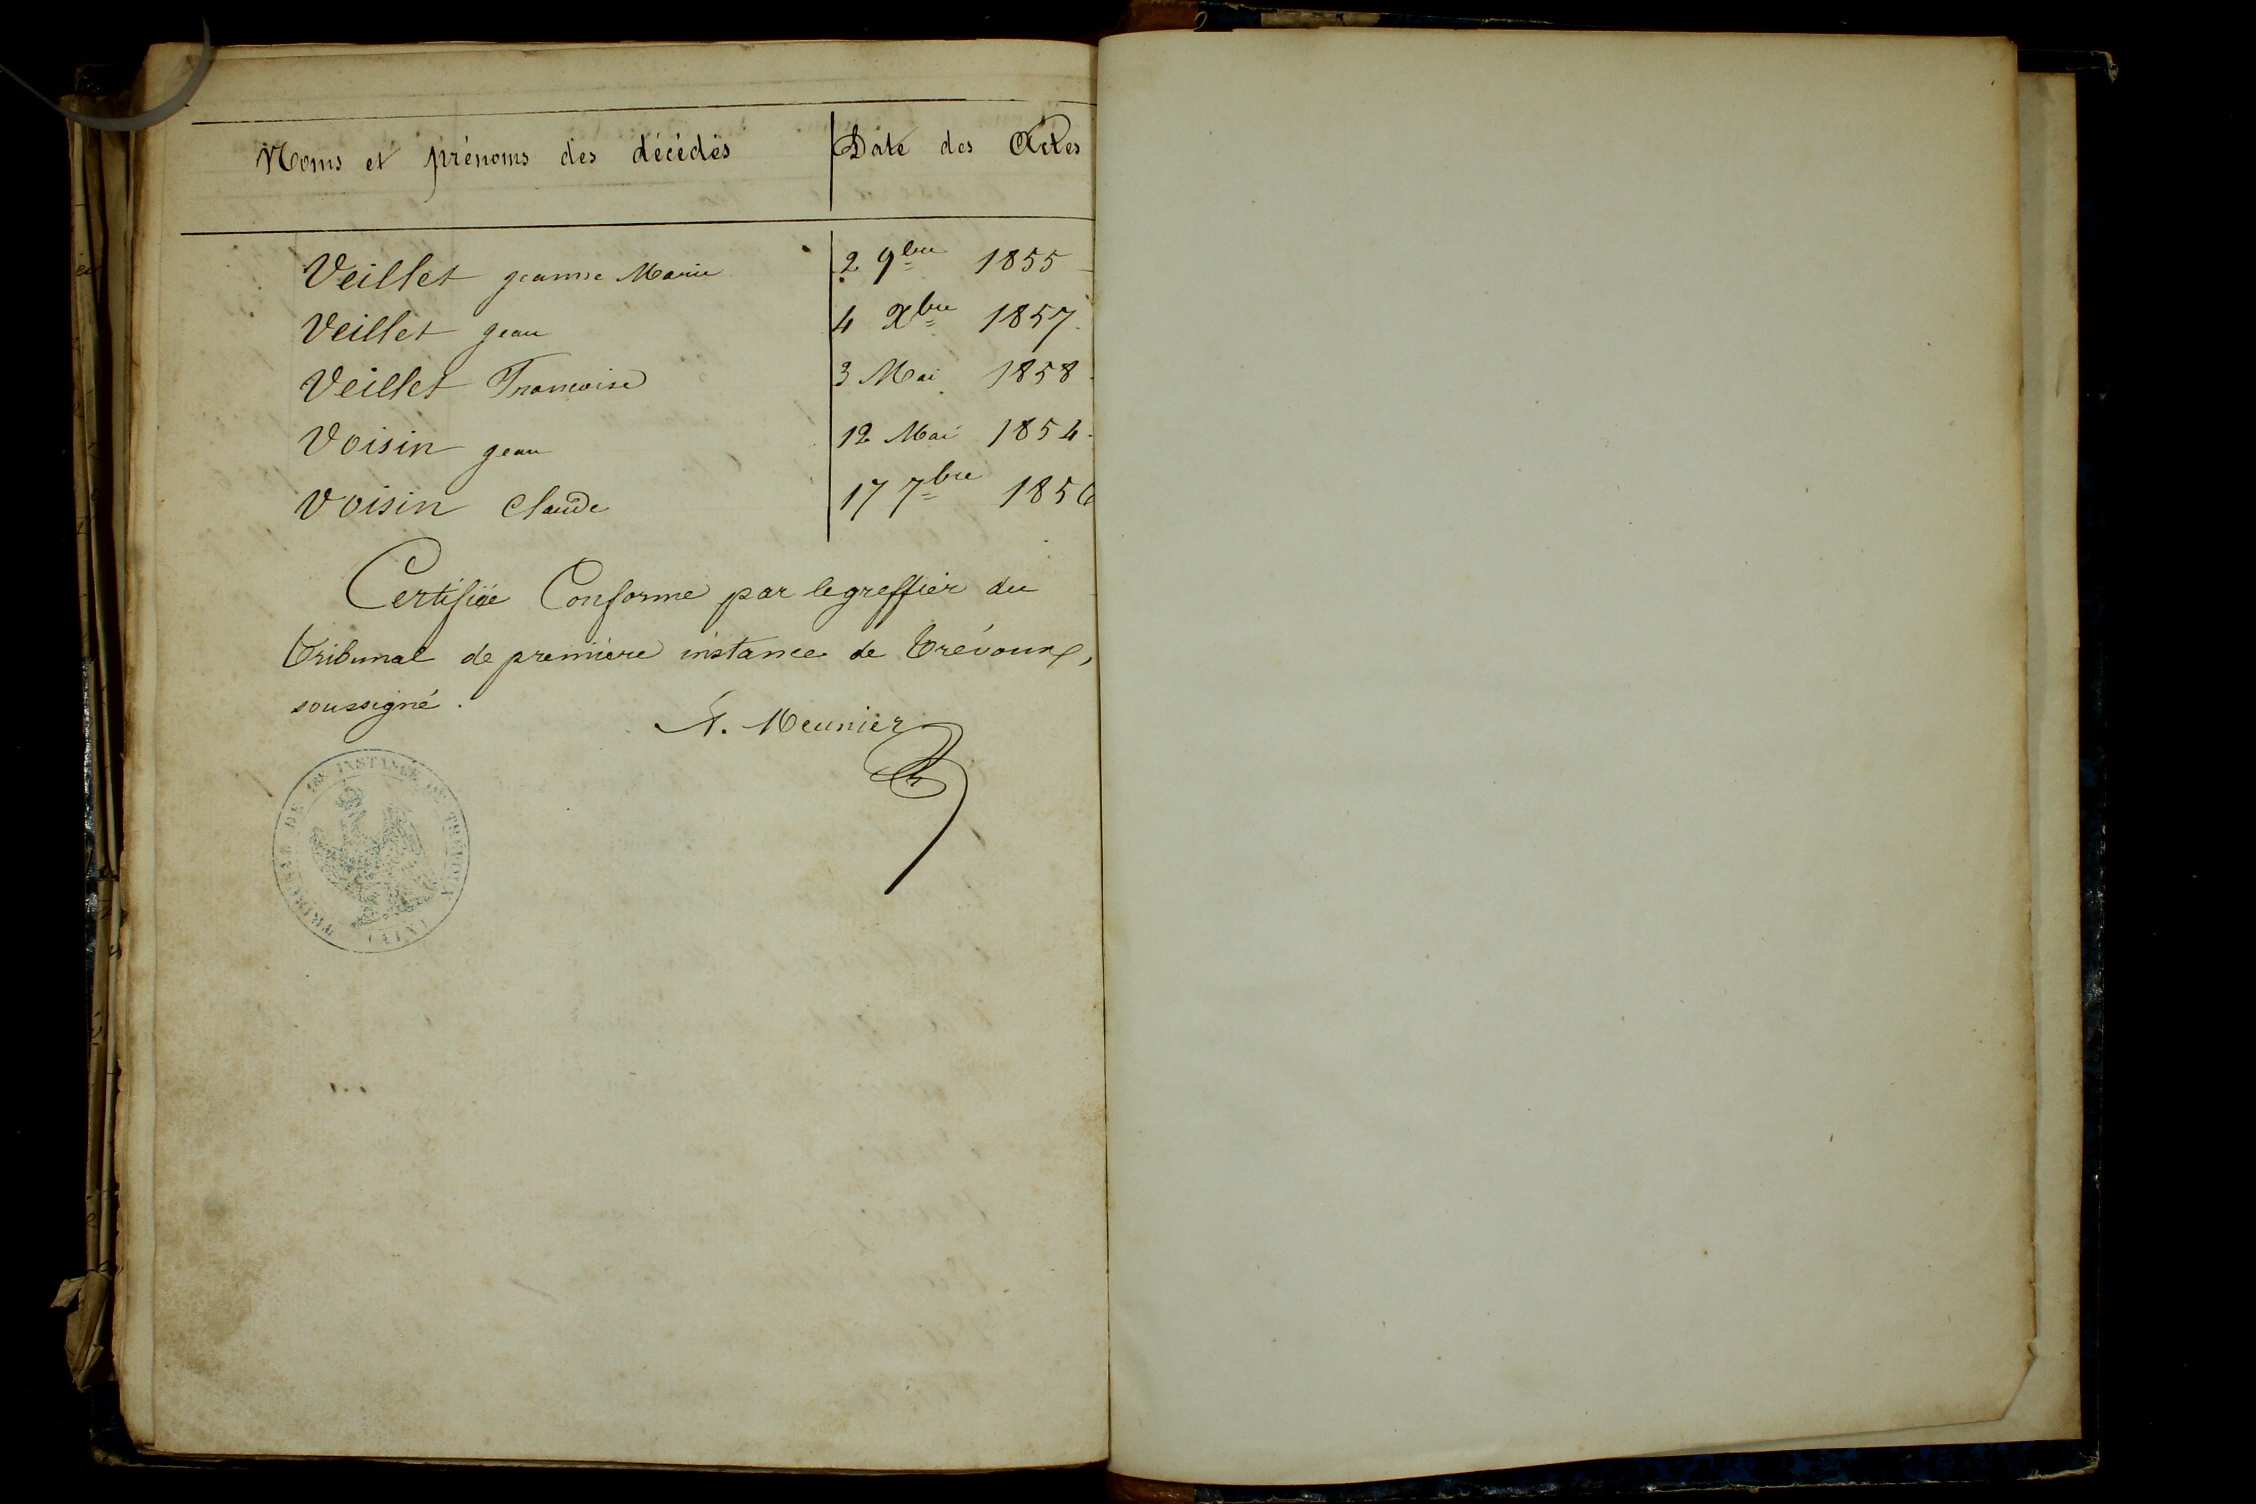 Noms et prénoms des décédés Date des Actes
Veillet jeanne Marie 2 9bre 1855
Veillet jean 4 Xbre 1857
Veillet Francoise 3 Mai 1858
Voisin jean 12 Mai 1854
Voisin Claude 17 7bre 1856
Certifiée Conforme par le greffier du
tribunal de première instance de trévoux,
soussigné.
A. Meunier
TRIBUNAL DE 1RE INSTANCE DE TRÉVOUX
(AIN)